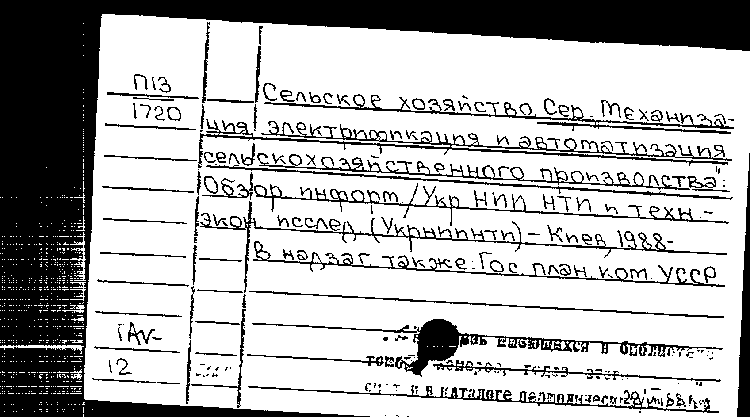 П13
1720
Сельское хозяйство. Сер. "Механиза-
ция, электрификация и автоматизация
сельскохозяйственного производства":
Обзор. информ / Укр НИИ НТИ и техн.-
экон исслед. (УкрНИИНТИ) – Киев, 1988-
В надзаг. также: Гос. план. ком. УССР
имеющихся в библиотеке
томов, номеров, годов этого
и в каталоге периодических
12